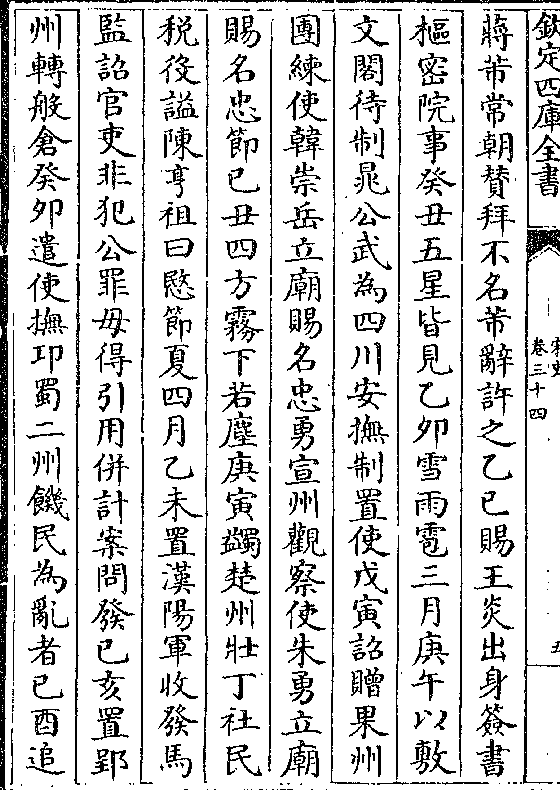 欽定四庫全書
宋史
卷三十四
五
蔣芾常朝贊拜不名芾辭許之乙巳賜王炎出身簽書
樞密院事癸丑五星皆見乙卯雪雨雹三月庚午以敷
文閣待制晁公武為四川安撫制置使戊寅詔贈果州
團練使韓崇岳立廟賜名忠勇宣州觀察使朱勇立廟
賜名忠節己丑四方霧下若塵庚寅蠲楚州壯丁社民
税役諡陳亨祖曰愍節夏四月乙未置漢陽軍收發馬
監詔官吏非犯公罪毋得引用併計案問發己亥置郢
州轉般倉癸卯遣使撫邛蜀二州饑民為亂者己酉追